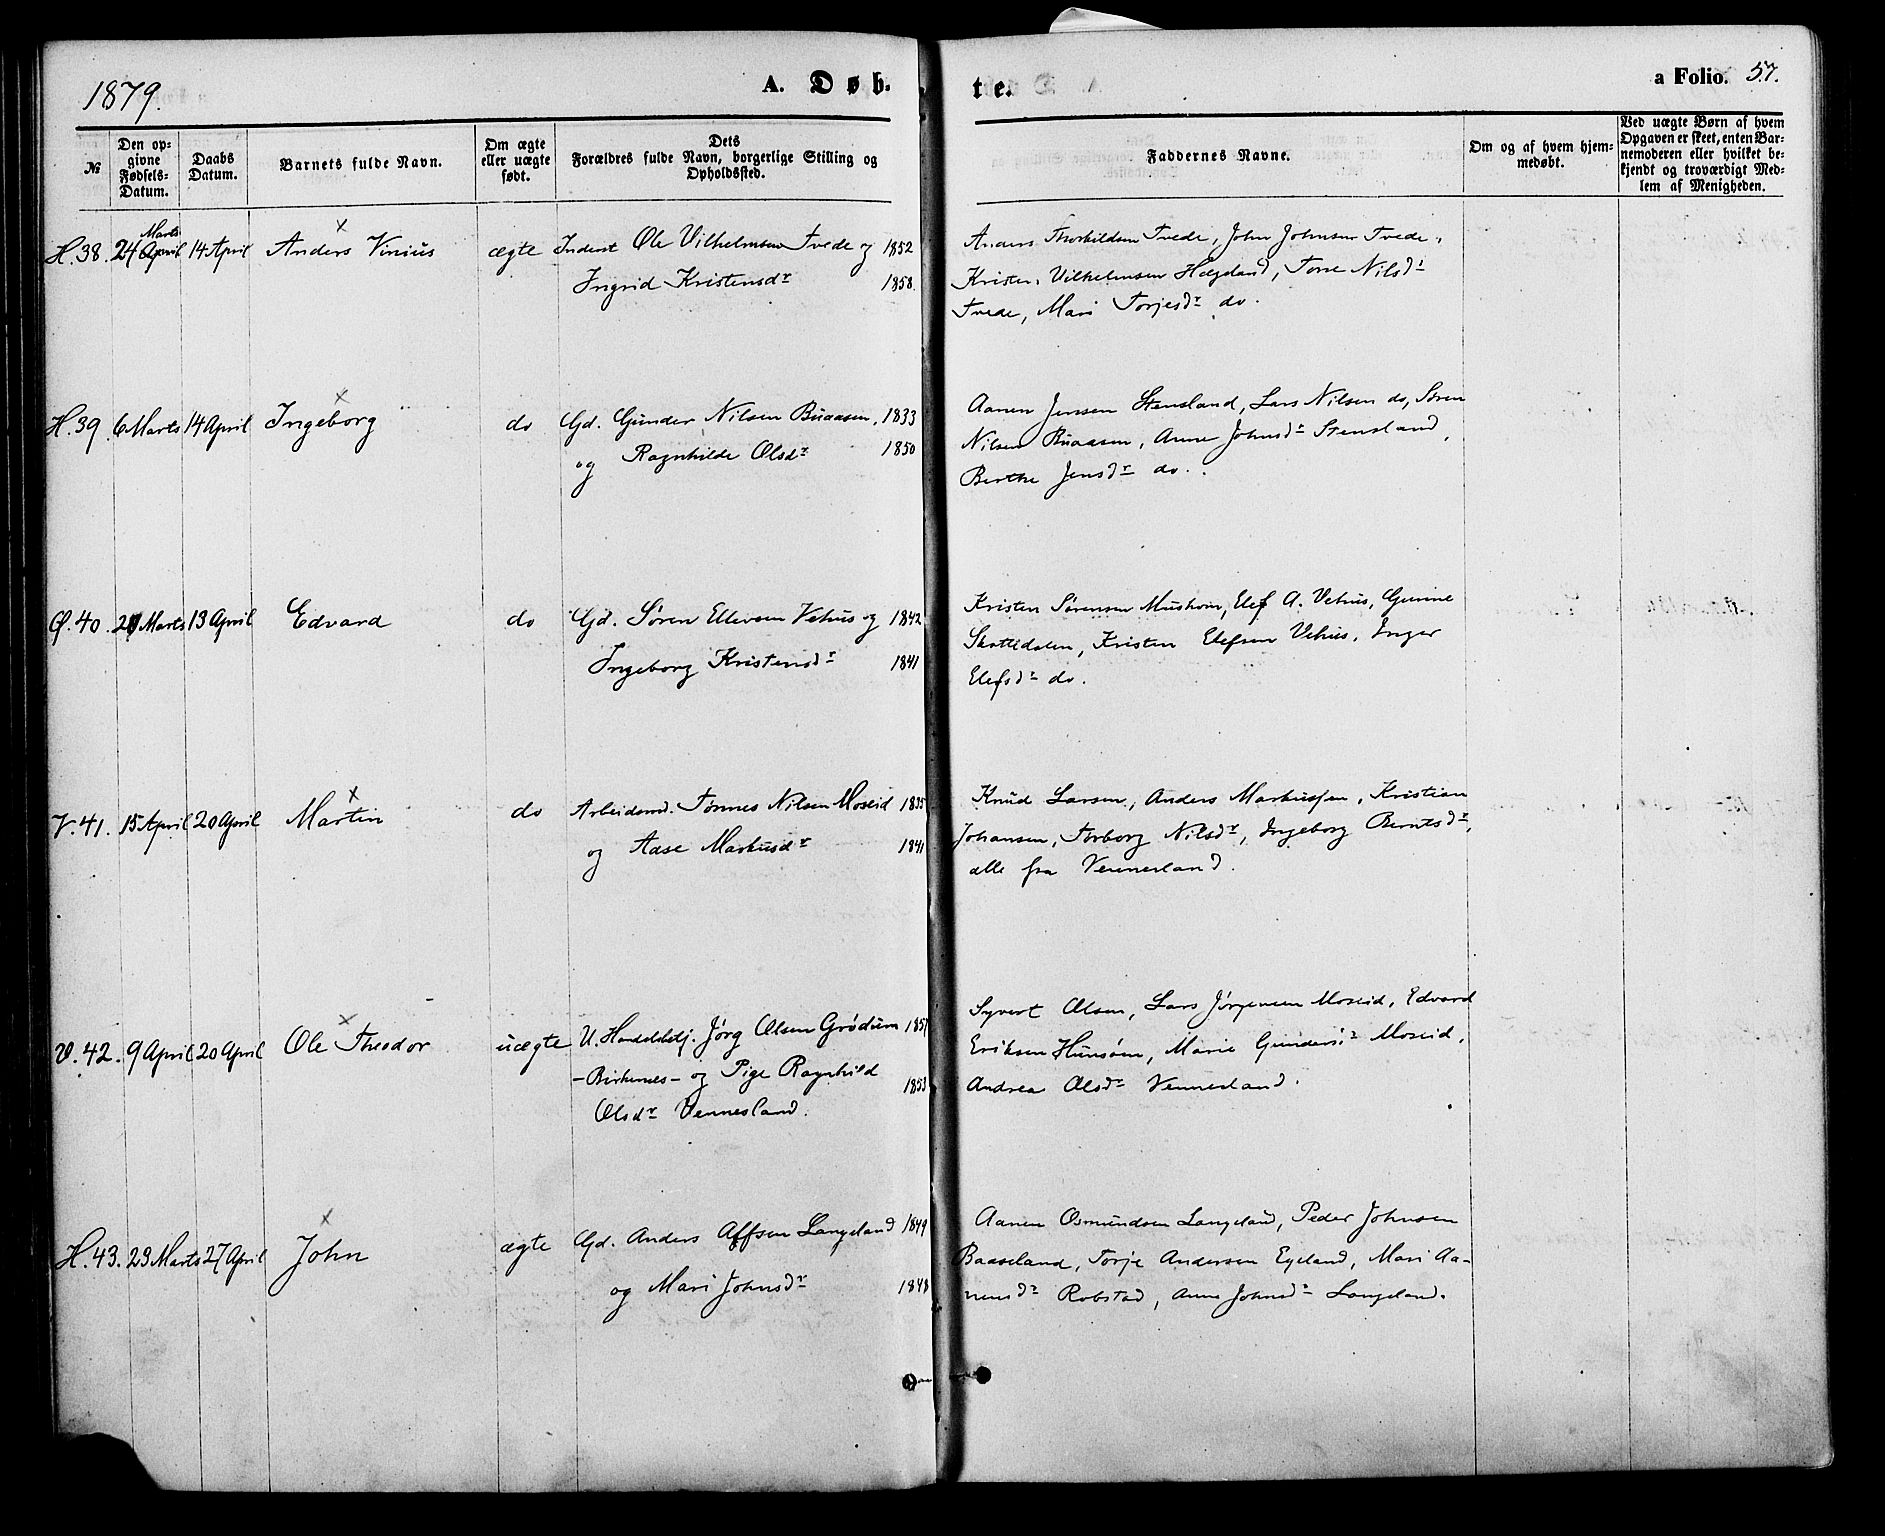 1879.
A. Døb-
te.
a Folio. 57.
№
Den opgivne Fødsels-Datum.
Daabs Datum.
Barnets fulde Navn.
Om ægte eller uægte født.
Dets Forældres fulde Navn, borgerlige Stilling og Opholdssted.
Faddernes Navne.
Om og af hvem hjemmedøbt.
Ved uægte Børn af hvem Opgaven er skeet, enten Barnemoderen eller hvilket bekjendt og troværdigt Medlem af Menigheden.
H. 38. 24 April Marts 14 April Anders Vinius ægte Inderst Ole Vilhelmsen Tvede og 1852
Ingrid Kristensdr 1858.
Anders Thorkildsen Tvede, John Johnsen Tvede,
Kristen Vilhelmsen Hægeland, Tone Nilsdr
Tvede, Mari Torjesdr do.
H. 39. 6 Marts 14 April Ingeborg do Gd. Gunder Nilsen Buaasen, 1833
og Ragnhilde Olsdr 1850
Aanen Jenssen Stensland, Lars Nilsen do, Søren
Nilsen Buaasen, Anne Johnsdr Stensland,
Berthe Jensdr do.
Ø. 40. Marts 13 April Edvard do Gd. Søren Ellevsen Vehus og 1842
Ingeborg Kristensdr 1841
Kristen Sørensen Mushom, Elef A. Vehus, Gunne
Skottedalen, Kristen Elefsen Vehus, Inger
Elefsdr do.
V. 41. 15 April 20 April Martin do Arbeidsmd. Tønnes Nilsen Moseid 1835
og Aase Markusdr 1841
Knud Larsen, Anders Markussen, Kristian
Johansen, Torborg Nilsdr, Ingeborg Berntsdr,
alle fra Vennesland.
V. 42. 9 April 20 April Ole Theodor uægte U. Handelsbetj. Jørg Olsen Grødum 1857
-Birkenes- og Pige Ragnhild 1853
Olsdr Vennesland.
Syvert Olsen, Lars Jørgensen Moseid, Edvard
Eriksen Hunsøen, Marie Gundersdr Moseid,
Andrea Olsdr Vennesland.
H. 43. 23 Marts 27 April John ægte Gd. Anders Affsen Langeland 1849
og Mari Johnsdr 1848
Aanen Osmundsen Langeland, Peder Johnsen
Baaseland, Torje Andersen Egeland, Mari Aa-
nensdr Robstad, Anne Johnsdr Langeland.